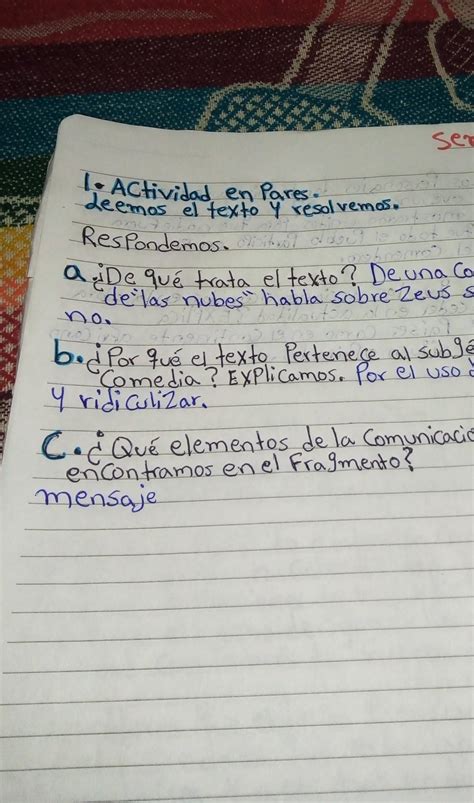 Ser
1. Actividad en Pares.
Leemos el texto y resolvemos.
Respondemos.
a. ¿De qué trata el texto? De una Co
de "las nubes" habla sobre Zeus s
no.
b. ¿Por qué el texto Pertenece al subgé
Comedia? Explicamos. Por el uso d
y ridiculizar.
C. ¿Qué elementos de la Comunicació
encontramos en el Fragmento?
mensaje